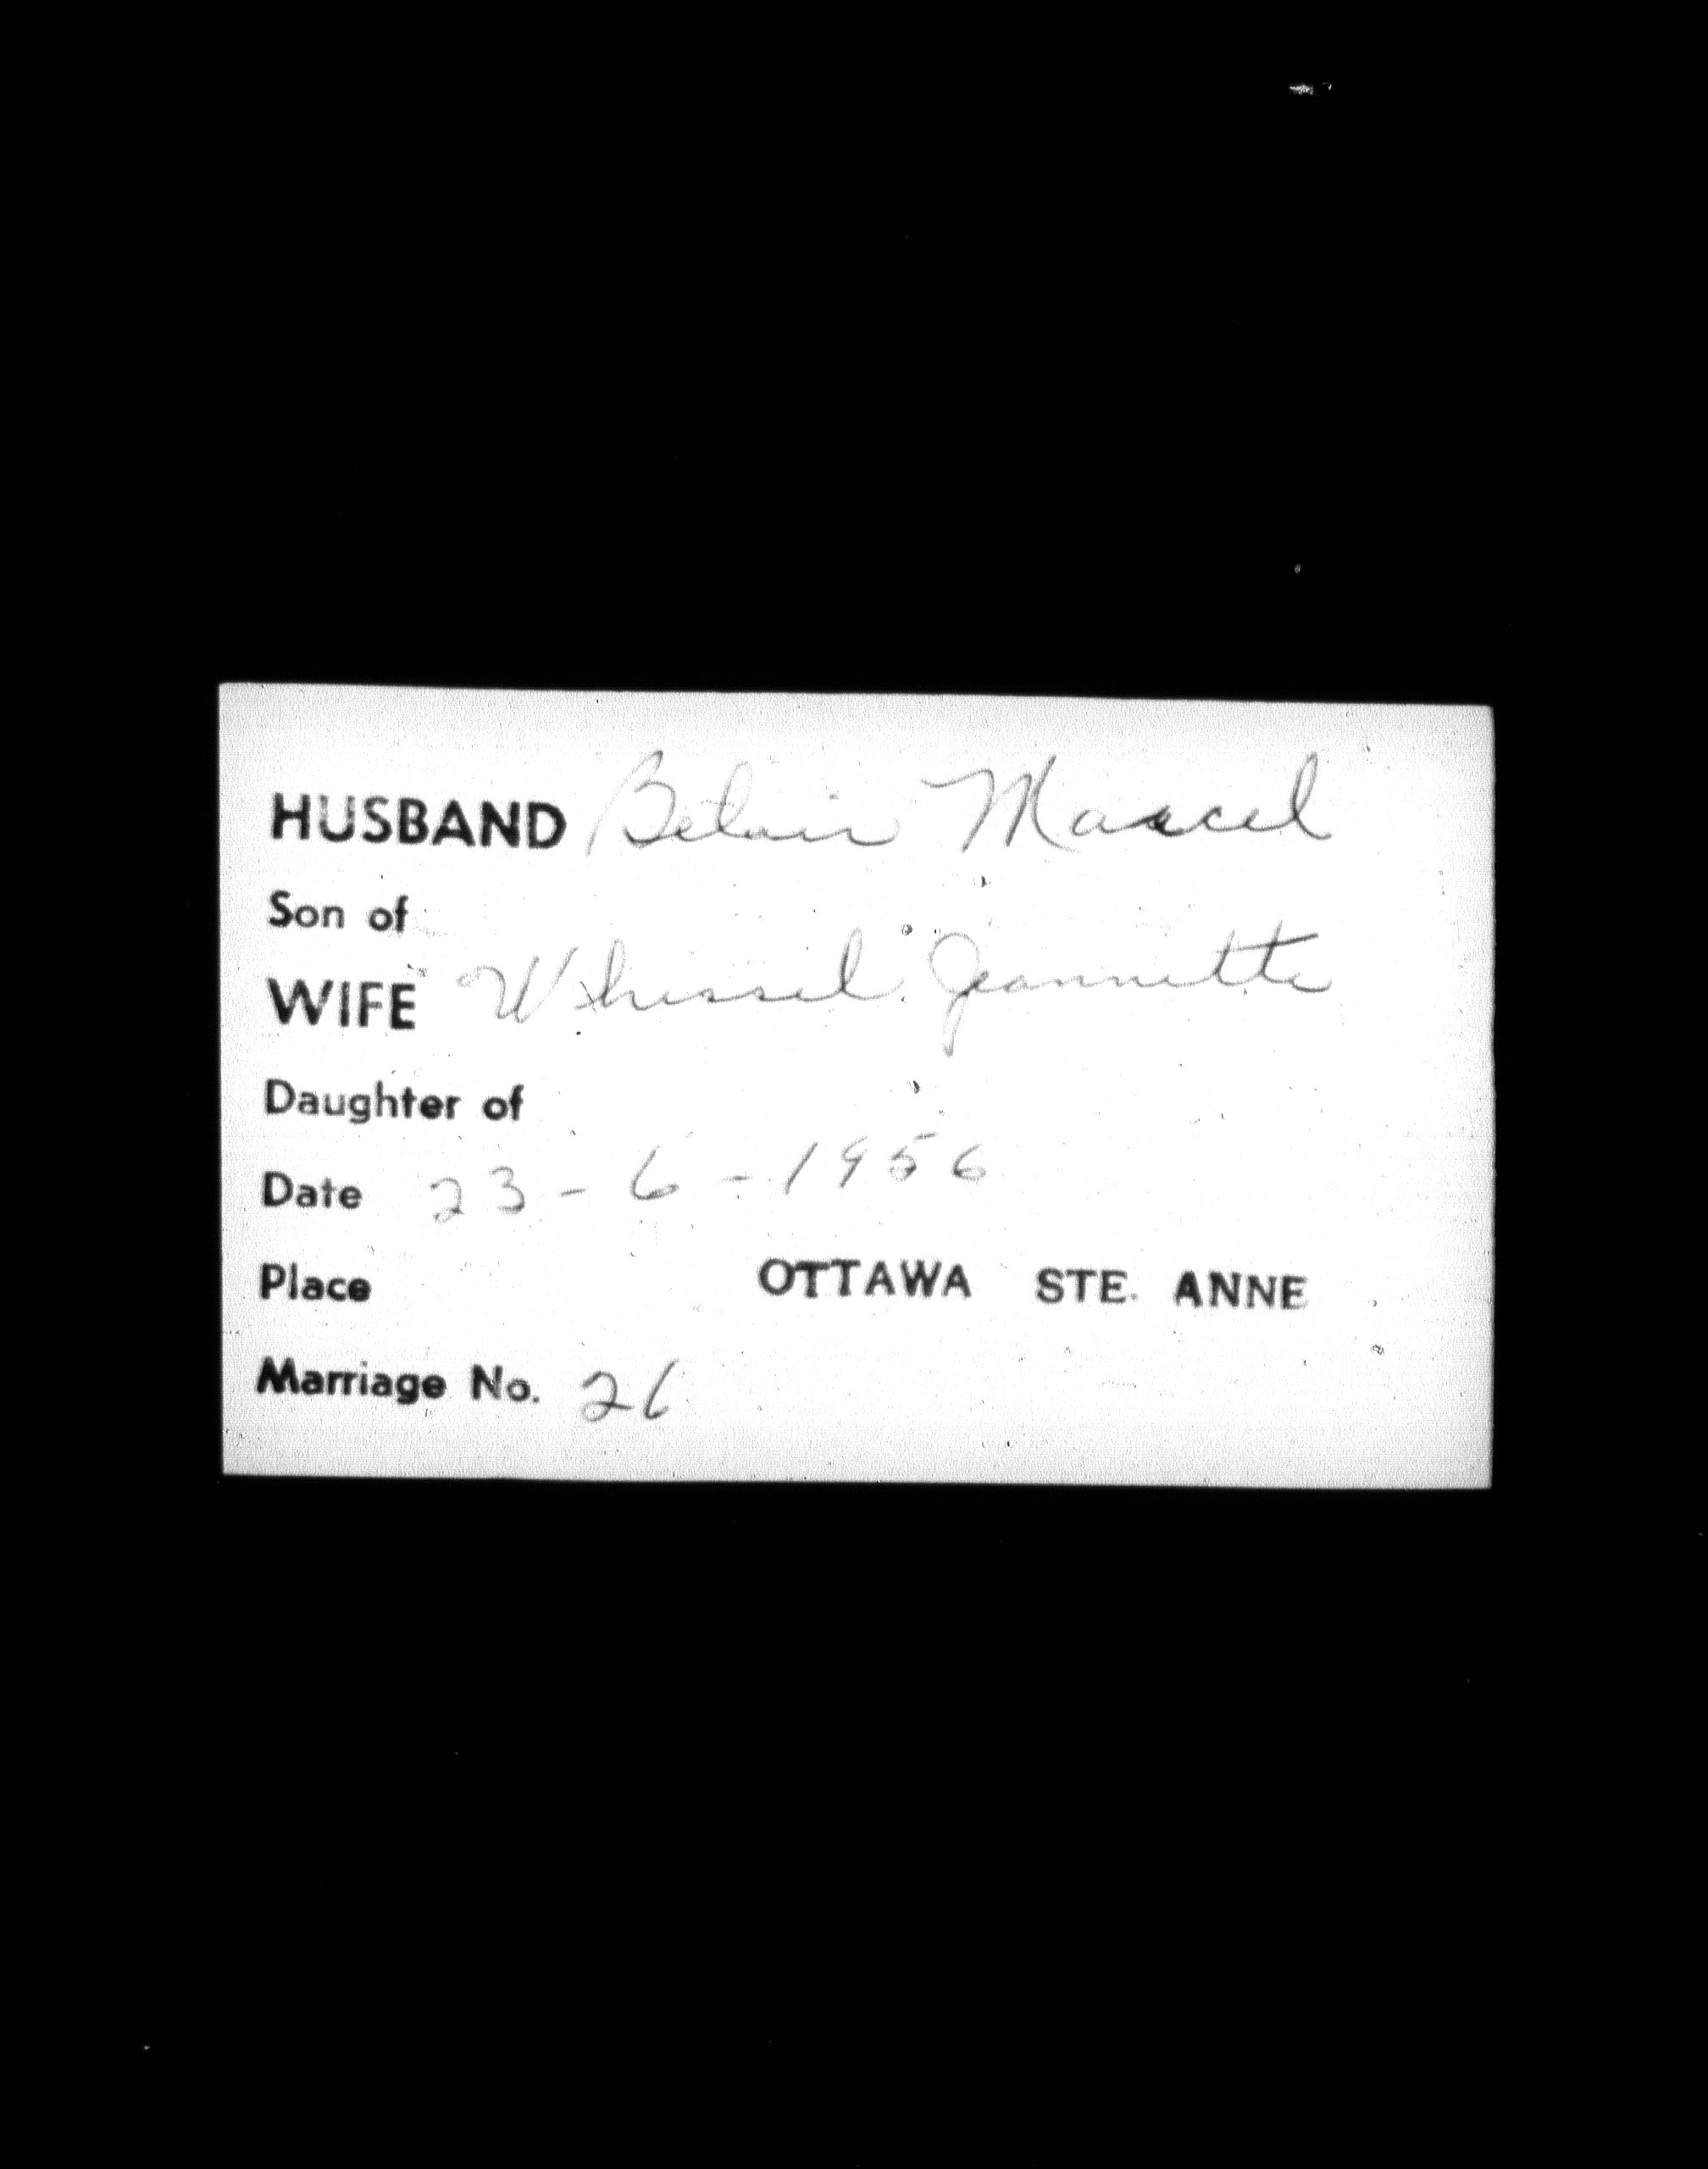 HUSBAND Belair Marcel
Son of
WIFE Whissel Jeannette
Daughter of
Date 23-6-1956
Place OTTAWA STE. ANNE
Marriage No. 26